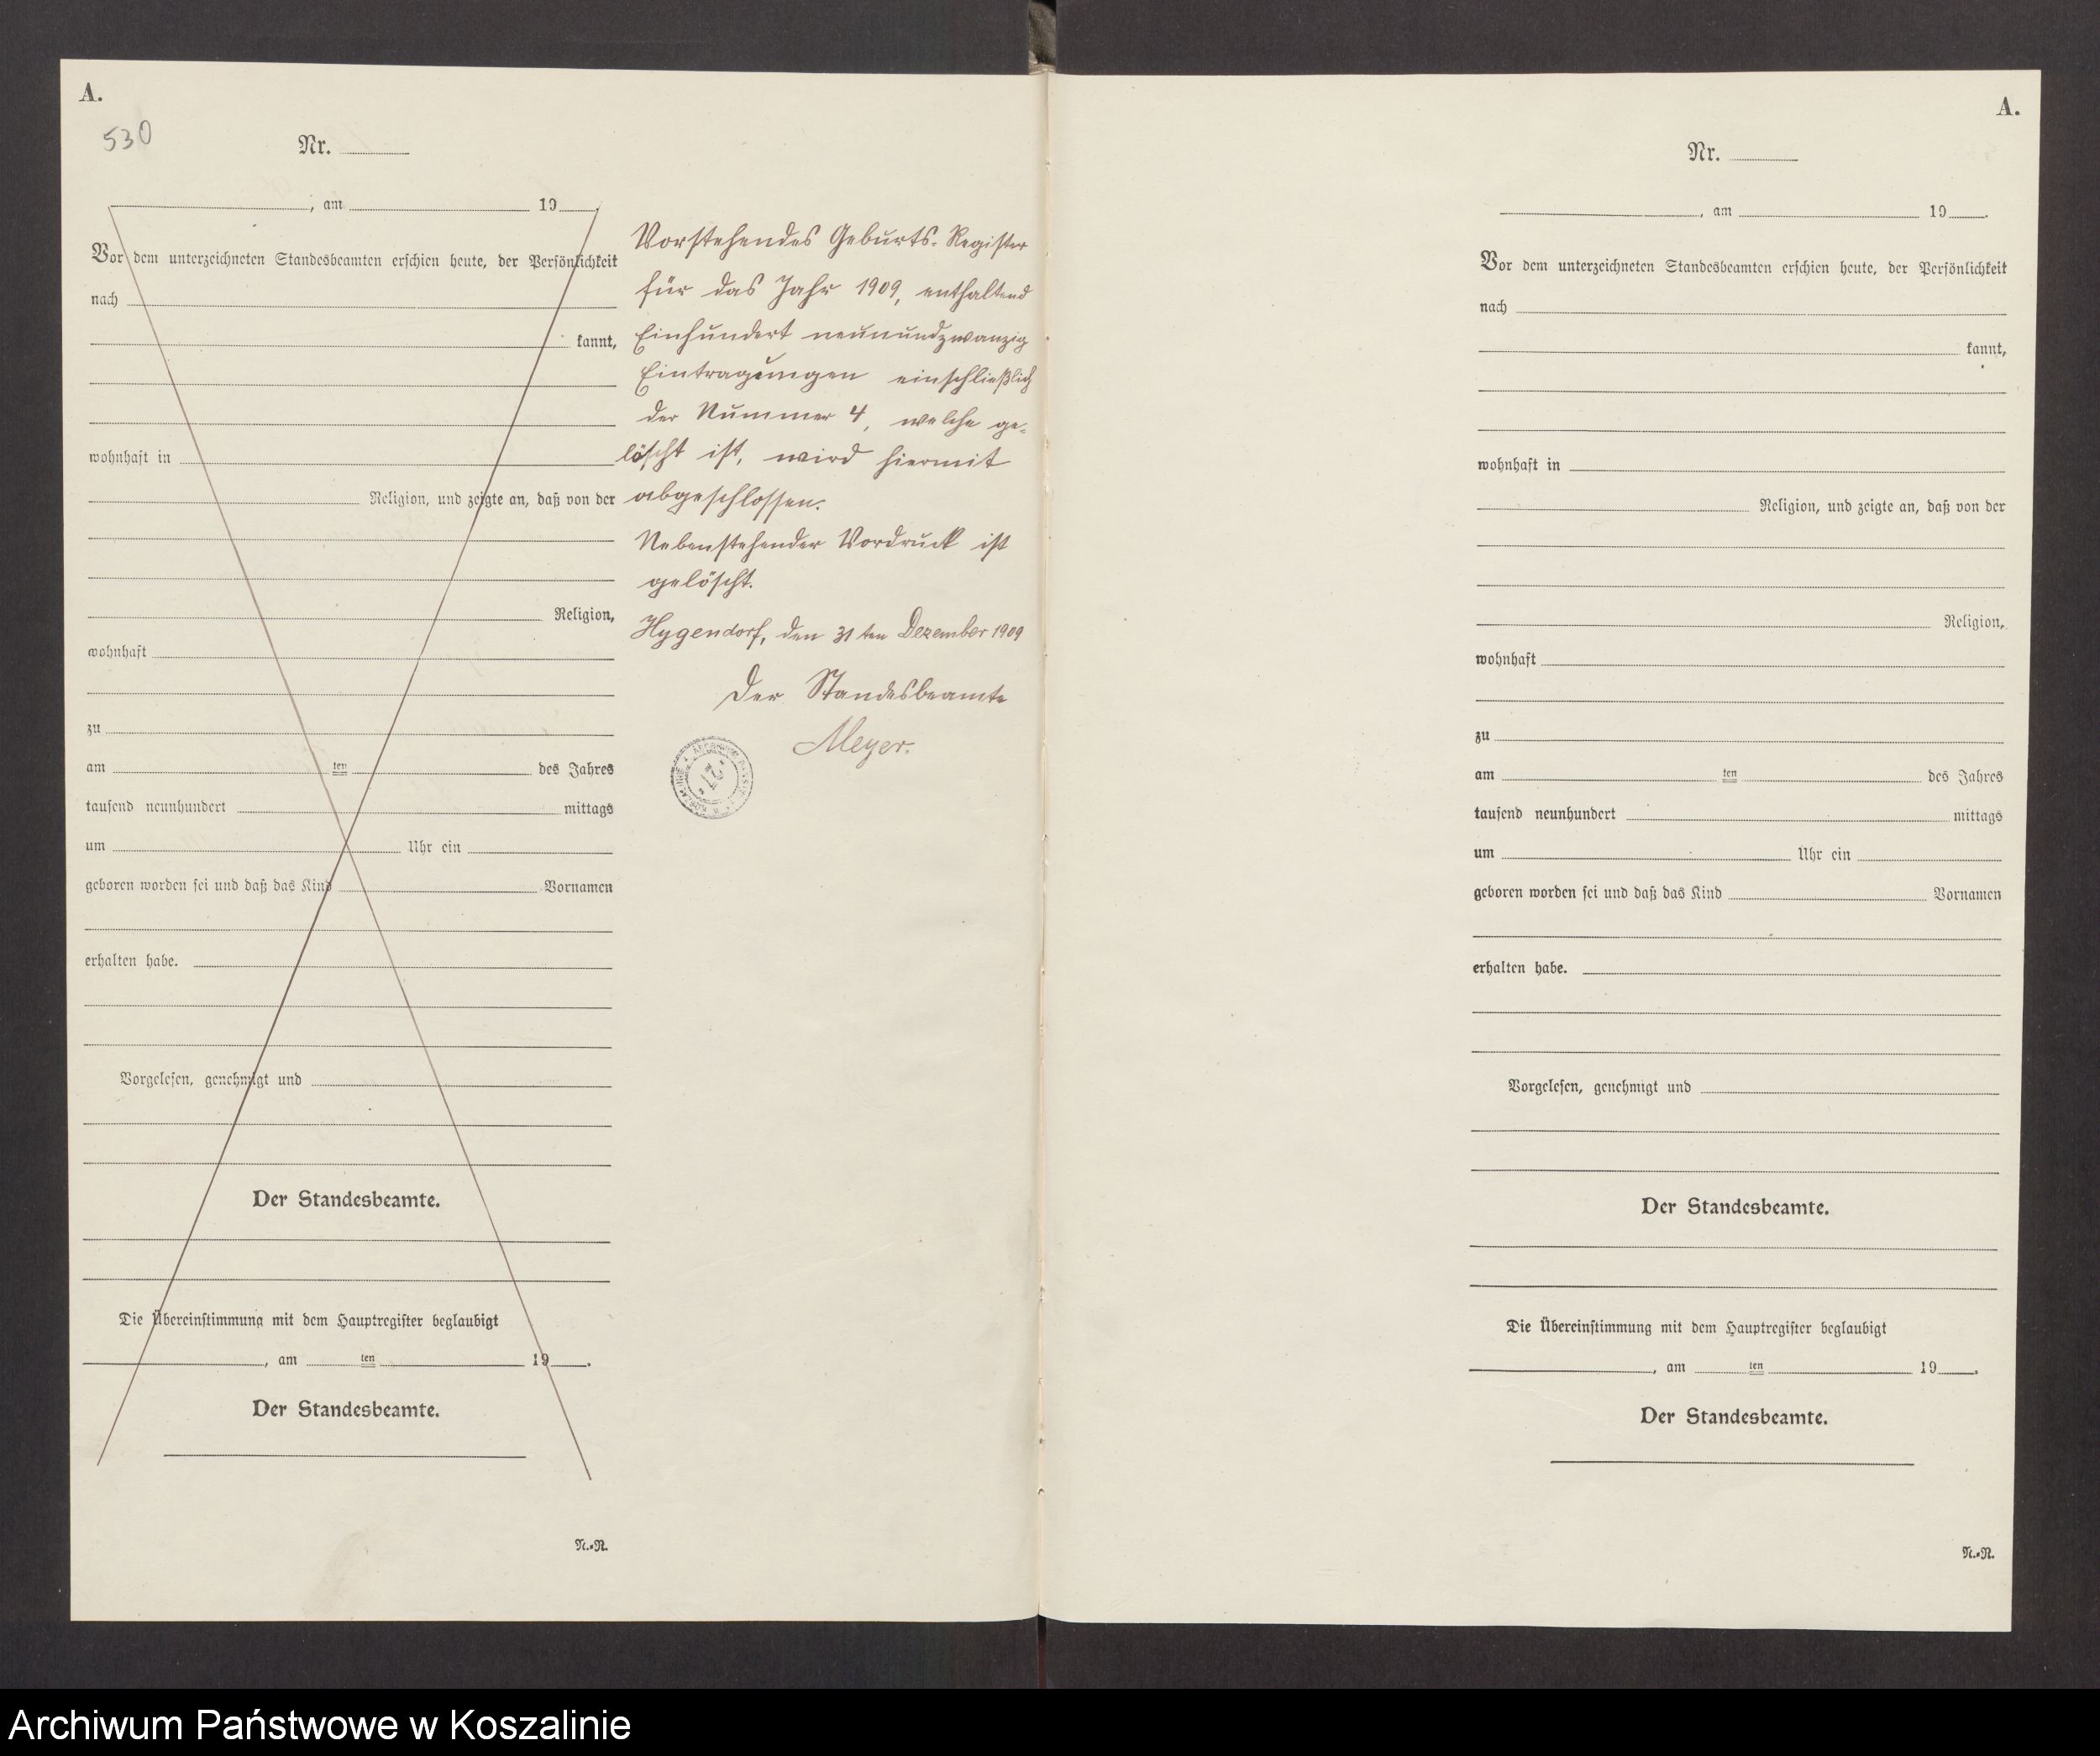 A.
530
Nr.
, am 19 .
Vor dem unterzeichneten Standesbeamten erschien heute, der Persönlichkeit
nach
kannt,
wohnhaft in
Religion, und zeigte an, daß von der
Religion,
wohnhaft
zu
am ten des Jahres
tausend neunhundert mittags
um Uhr ein
geboren worden sei und daß das Kind Vornamen
erhalten habe.
Vorgelesen, genehmigt und
Der Standesbeamte.
Die Übereinstimmung mit dem Hauptregister beglaubigt
, am ten 19 .
Der Standesbeamte.
N.-R.
Vorstehendes Geburts-Register
für das Jahr 1909, enthaltend
Einhundert neunundzwanzig
Eintragungen einschließlich
der Nummer 4, welche ge-
löscht ist, wird hiermit
abgeschlossen.
Nebenstehender Vordruck ist
gelöscht.
Hygendorf, den 31ten Dezember 1909
Der Standesbeamte
Meyer.
A.
Nr.
, am 19 .
Vor dem unterzeichneten Standesbeamten erschien heute, der Persönlichkeit
nach
kannt,
wohnhaft in
Religion, und zeigte an, daß von der
Religion,
wohnhaft
zu
am ten des Jahres
tausend neunhundert mittags
um Uhr ein
geboren worden sei und daß das Kind Vornamen
erhalten habe.
Vorgelesen, genehmigt und
Der Standesbeamte.
Die Übereinstimmung mit dem Hauptregister beglaubigt
, am ten 19 .
Der Standesbeamte.
N.-R.
Archiwum Państwowe w Koszalinie